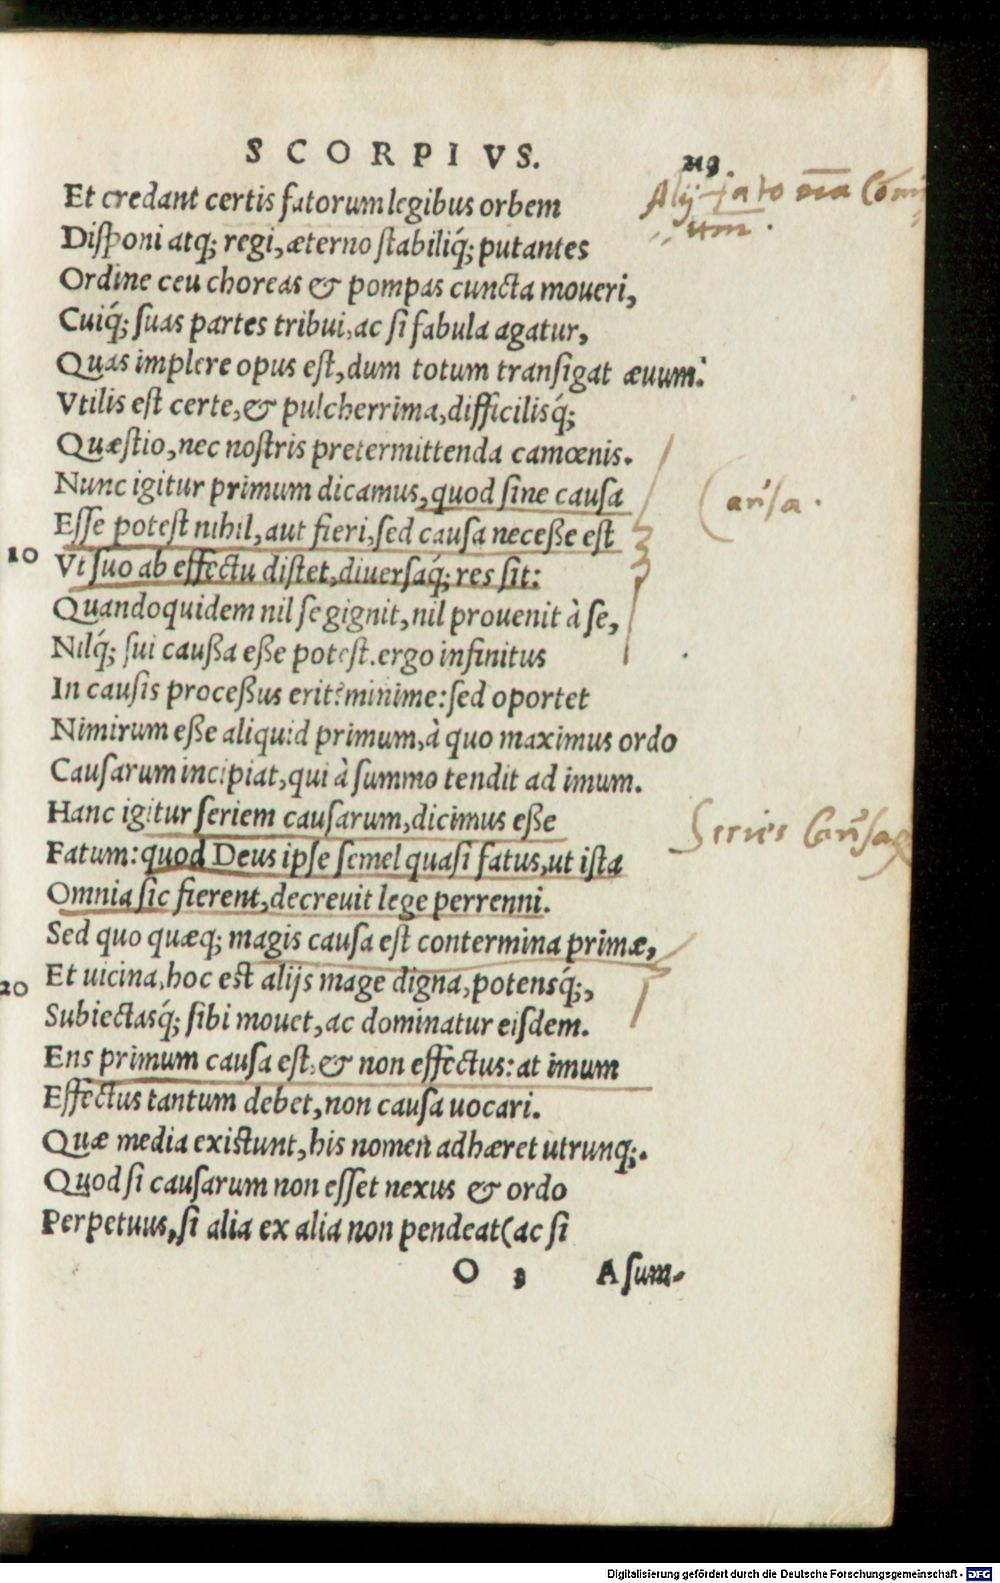 SCORPIVS.
213.
Et credant certis fatorum legibus orbem
Alij fato
Disponi atq; regi, æterno stabiliq́; putantes
Ordine ceu choreas & pompas cuncta moueri,
Cuiq́; suas partes tribui, ac si fabula agatur,
Quas implere opus est, dum totum transigat æuum:
Vtilis est certe, & pulcherrima, difficilisq́;
Quæstio, nec nostris pretermittenda camœnis.
Nunc igitur primum dicamus, quod sine causa
Causa.
Esse potest nihil, aut fieri, sed causa neceße est
10 Vt suo ab effectu distet, diuersaq́; res sit:
Quandoquidem nil se gignit, nil prouenit à se,
Nilq́; sui caußa eße potest. ergo infinitus
In causis proceßus erit? minime: sed oportet
Nimirum eße aliquid primum, à quo maximus ordo
Causarum incipiat, qui à summo tendit ad imum.
Hanc igitur seriem causarum, dicimus eße
Series Causaꝝ
Fatum: quod Deus ipse semel quasi fatus, ut ista
Omnia sic fierent, decreuit lege perrenni.
Sed quo quæq; magis causa est contermina primæ,
20 Et uicina, hoc est alijs mage digna, potensq́;,
Subiectasq́; sibi mouet, ac dominatur eisdem.
Ens primum causa est, & non effectus: at imum
Effectus tantum debet, non causa uocari.
Quæ media existunt, his nomen adhæret utrunq;.
Quod si causarum non esset nexus & ordo
Perpetuus, si alia ex alia non pendeat (ac si
O 3 A sum-
Digitalisierung gefördert durch die Deutsche Forschungsgemeinschaft - DFG